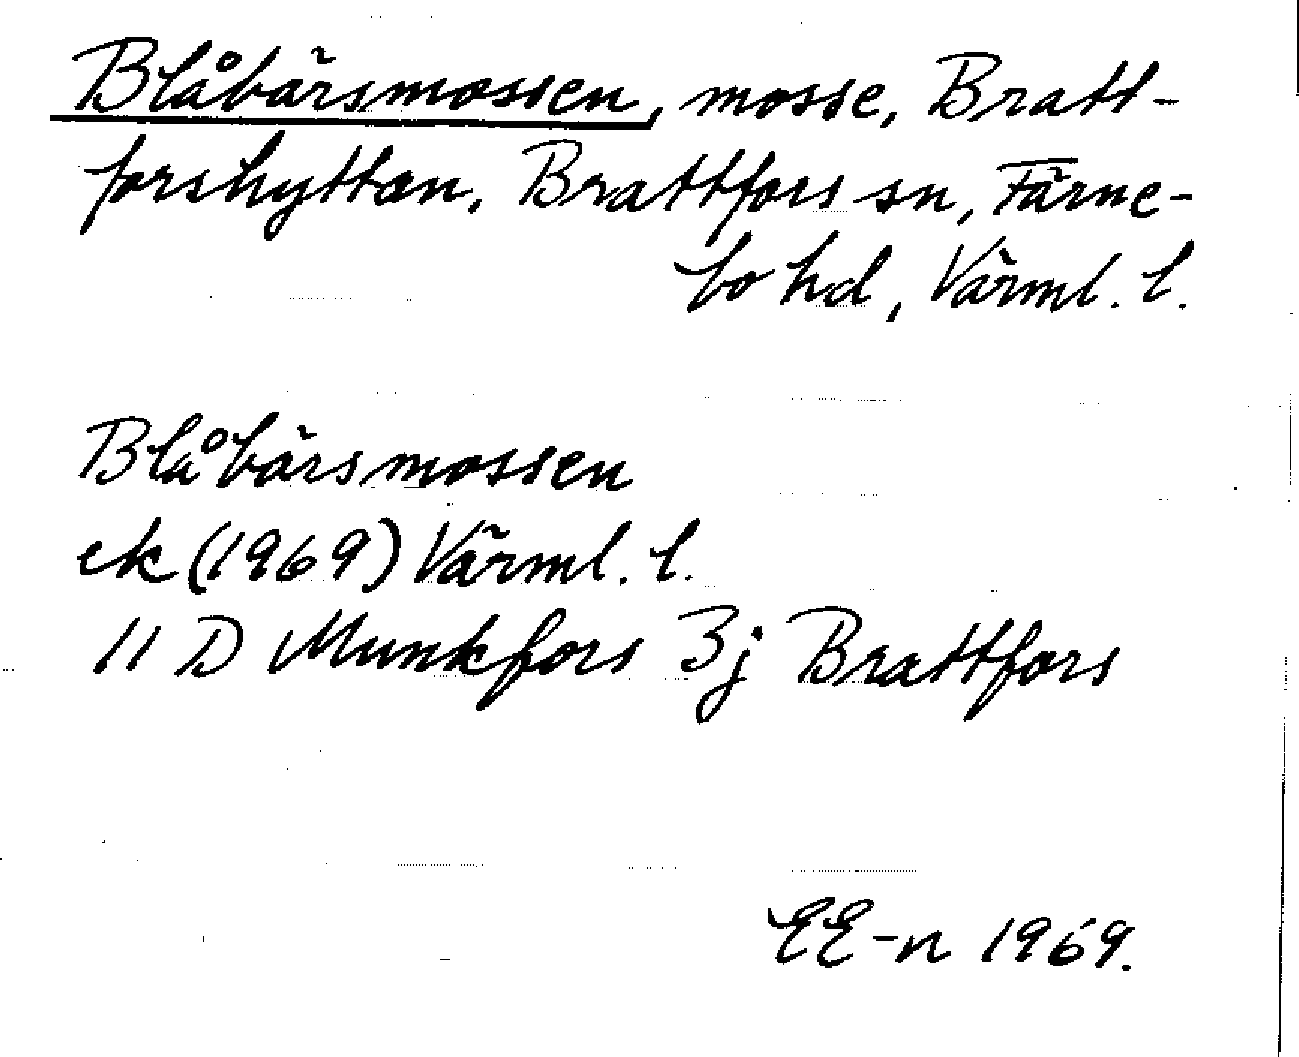 Blåbärsmossen, mosse, Bratt-
forshyttan, Brattfors sn, Färne-
bo hd, Värml. l.
Blåbärsmossen
ek (1969) Värml. l.
11 D Munkfors 3j Brattfors
EE-n 1969.